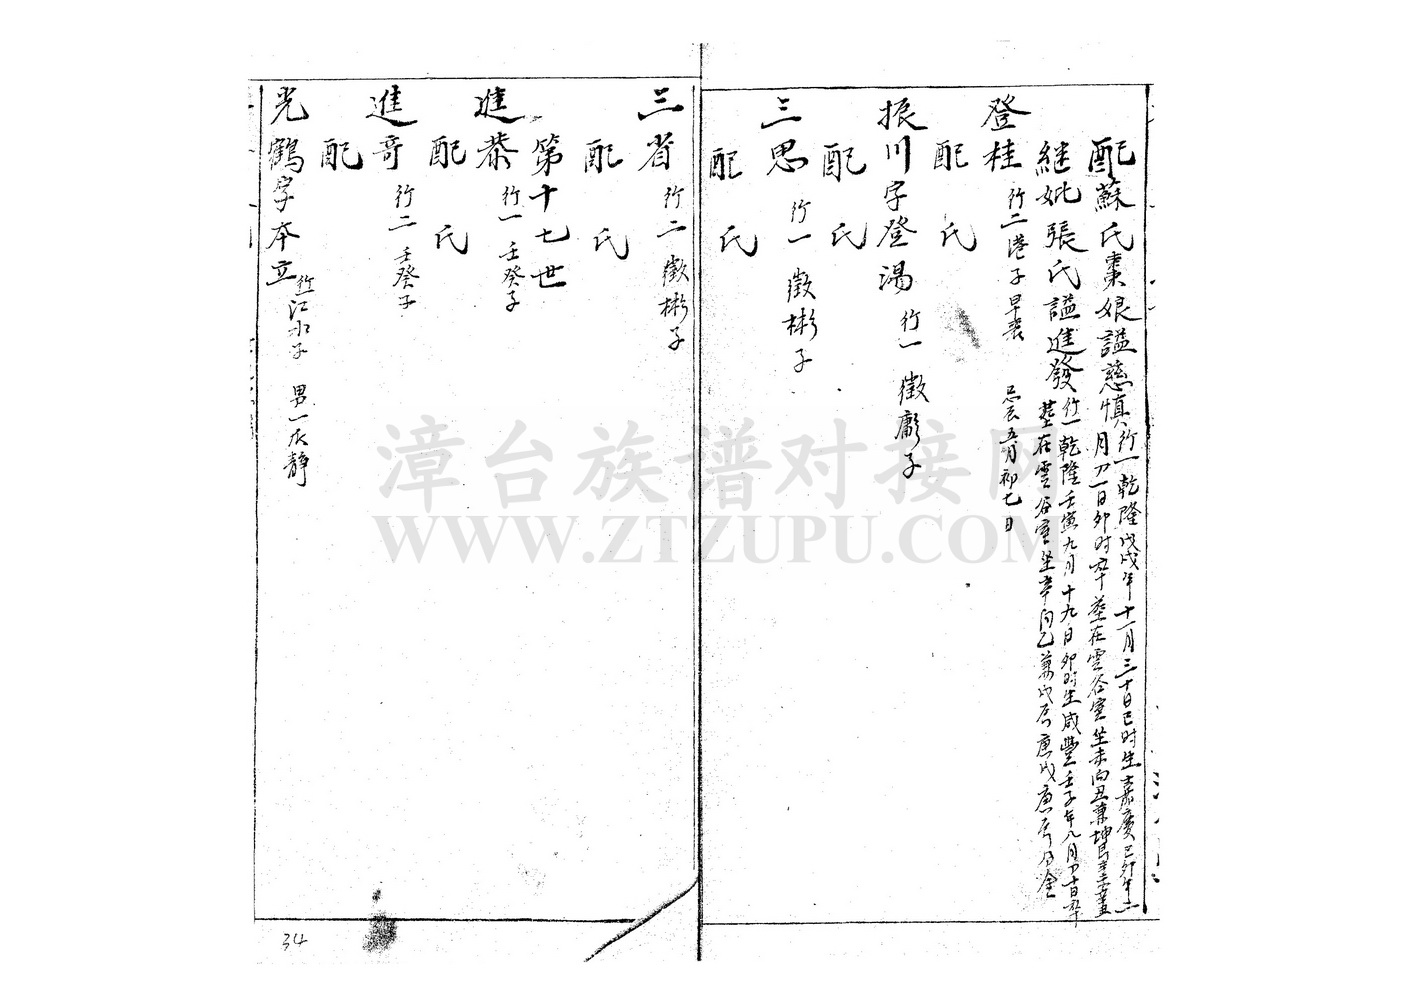 配蘇氏棗娘謚慈慎行一乾隆戊戌年十一月三十日巳時生嘉慶己卯年二
月初一日卯时卒葬在雲谷寔坐未向丑兼坤艮
継妣張氏謚進發行一乾隆壬寅九月十九日卯时生咸豐壬子年八月初十日卒
葬在雲谷寔坐辛向乙兼戌辰庚戌庚辰分金
登桂行二港子早喪 忌辰五月初七日
配氏
振川字登湯行一徵彪子
配氏
三思行一徵彬子
配氏
三省行二徵彬子
配氏
第十七世
進恭行一壬癸子
配氏
進奇行二壬癸子
配
光鶴字本立行江水子 男一
34
漳台族谱对接网
WWW.ZTZUPU.COM